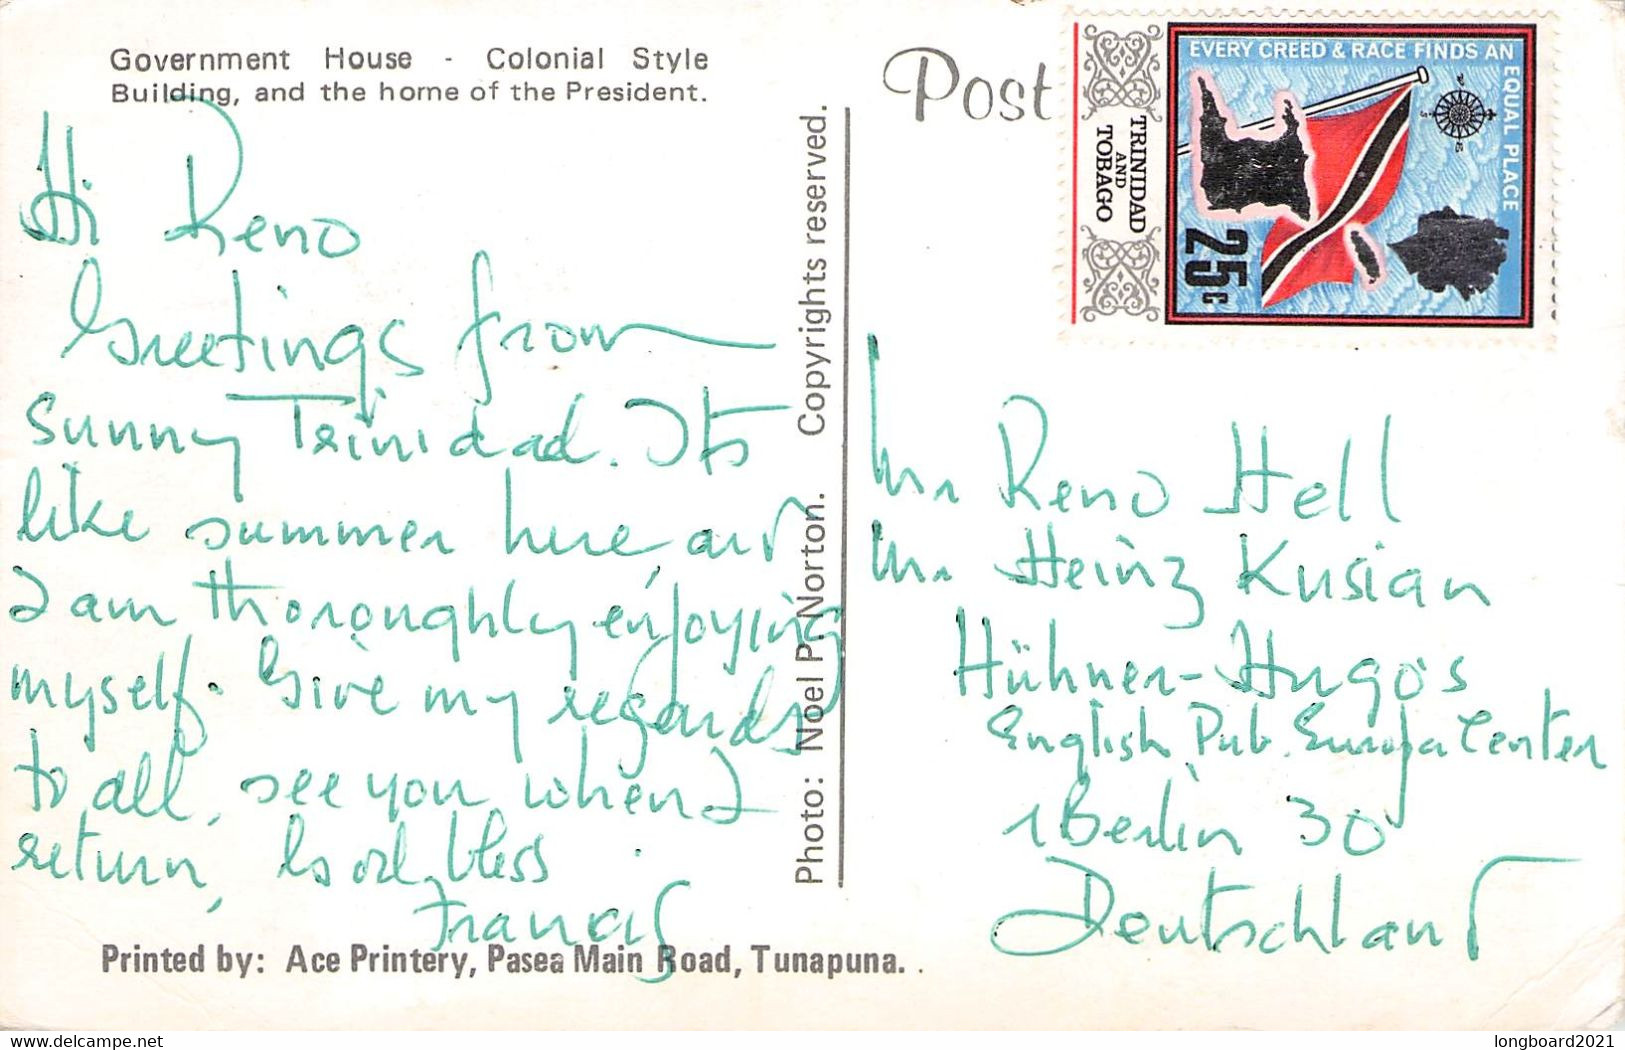 Government House - Colonial Style
Building, and the home of the President.
Hi Reno
Greetings from
sunny Trinidad. Its
like summer here, and
I am thoroughly enjoying
myself. Give my regards
to all, see you when I
return, God bless
Francis
Printed by: Ace Printery, Pasea Main Road, Tunapuna.
Photo: Noel P. Norton. Copyrights reserved.
Post
EVERY CREED & RACE FINDS AN EQUAL PLACE
TRINIDAD
AND
TOBAGO
25c
Mr Reno Hell
Mr Heinz Kusian
Hühner-Hugo's
English Pub. Europa Center
1 Berlin 30
Deutschland
delcampe.net
longboard2021